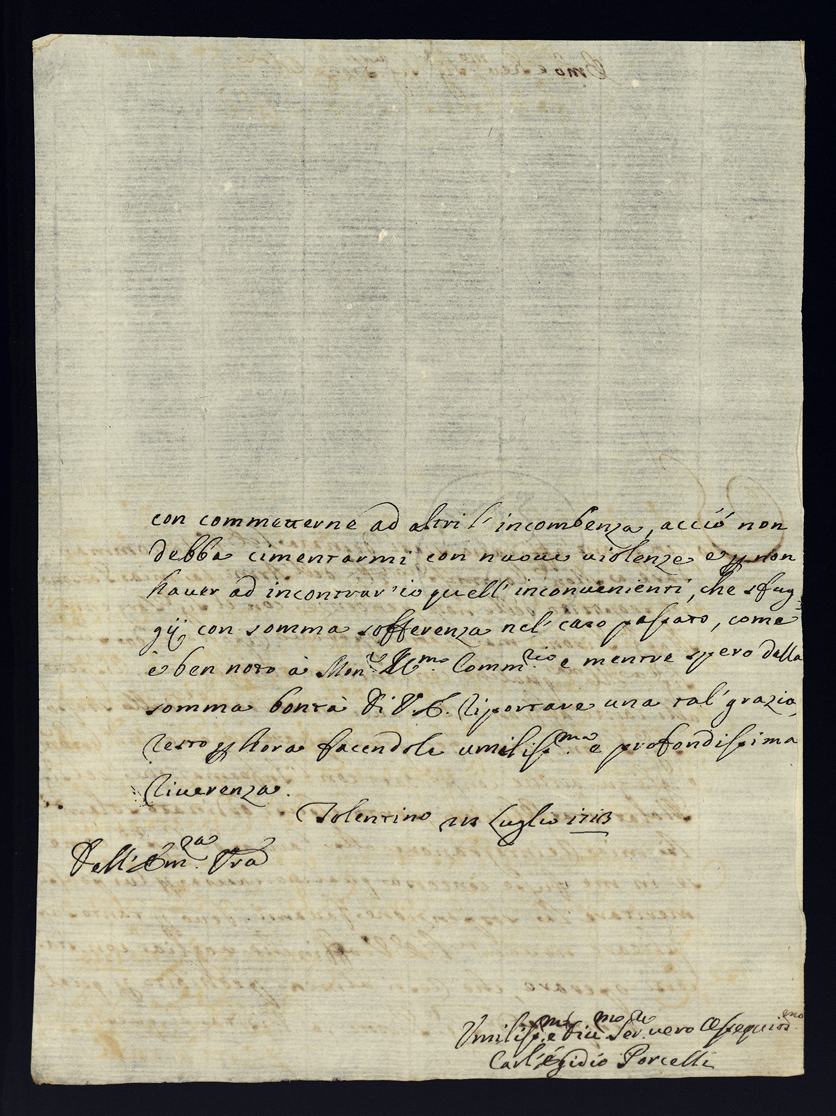 con commetterne ad altri l'incombenza, acciò non
debba cimentarmi con nuove violenze e p non
haver ad incontrar'io quelli inconvenienti, che sfug-
gÿ con somma sofferenza nel caso passato, come
è ben noto à Mon.r Ill.mo Comm.rio e mentre spero dalla
somma bontà di V. E. riportare una tal' grazia,
resto p hora facendole umiliss.ma e profondissima
riverenza.
Tolentino Luglio 1713
Dell' Em.za Vra
Umiliss.mo e Div.mo Ser.re vero Ossequios.mo
Carl'Egidio Porcelli